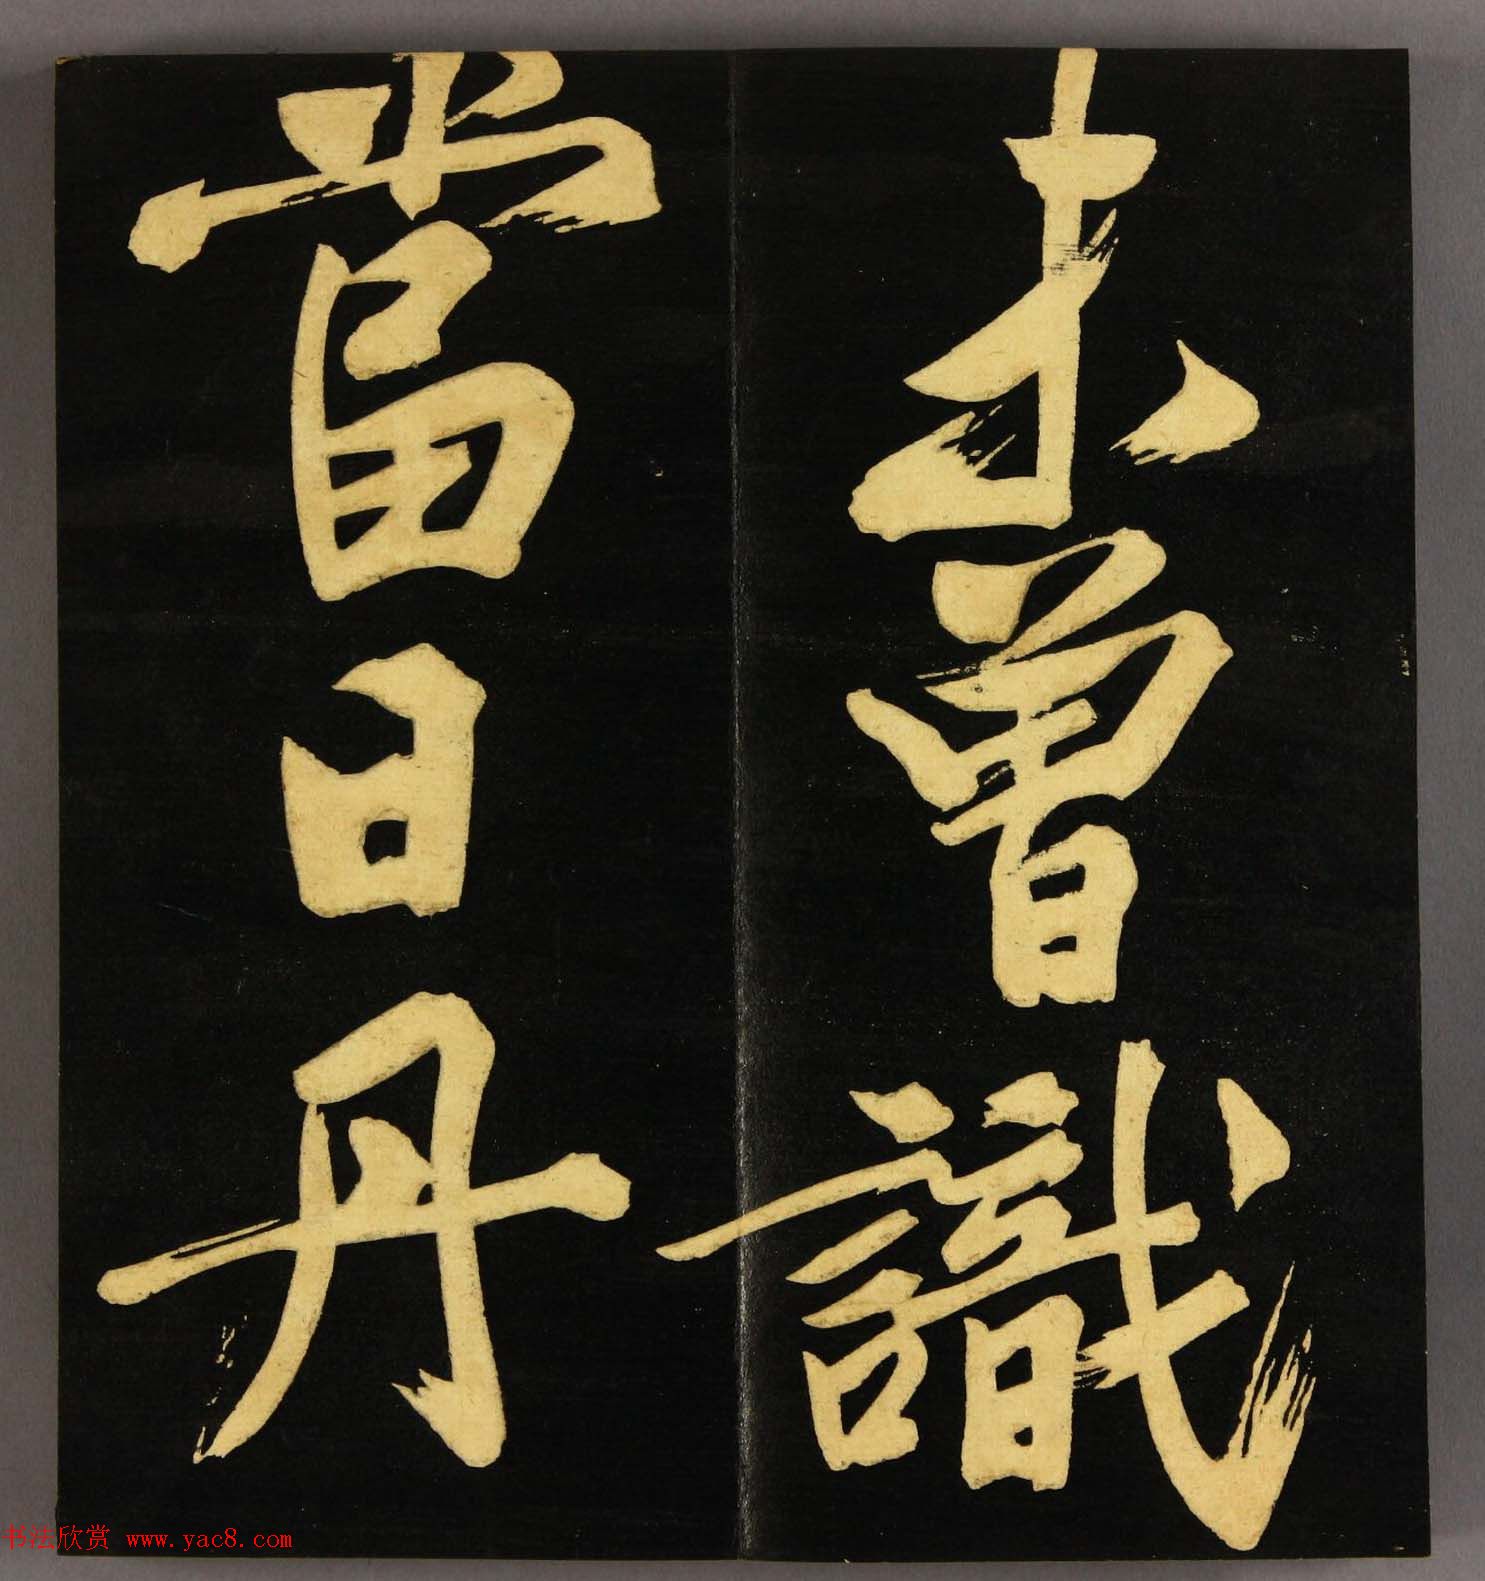 未曾識
當日丹
书法欣赏 www.yac8.com